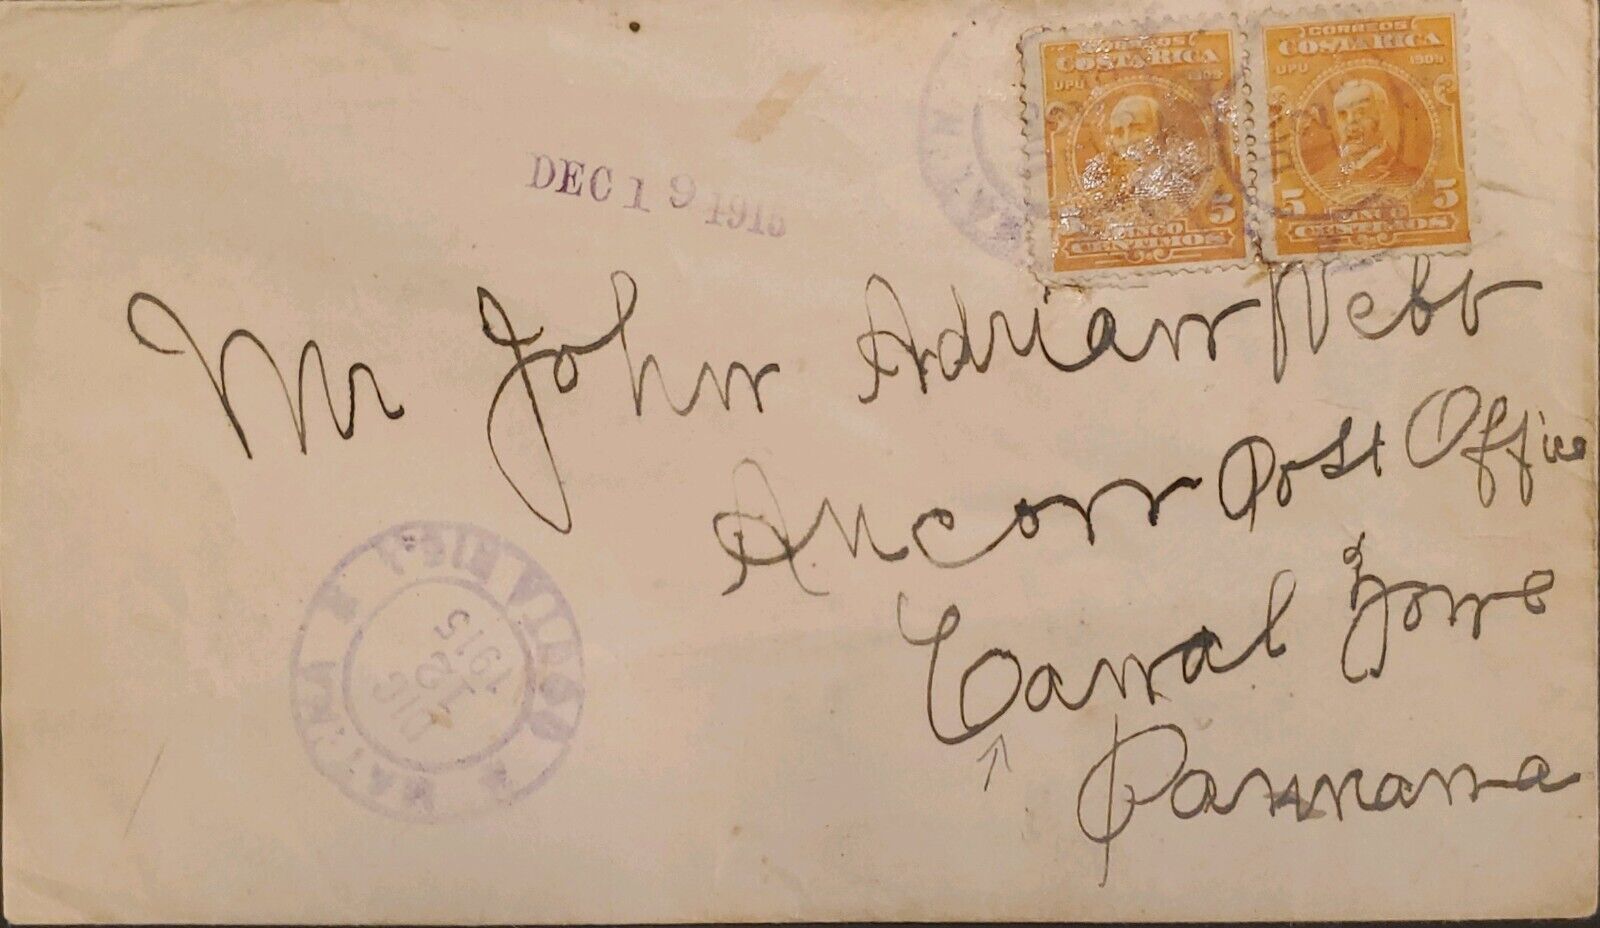 CORREOS
COSTA RICA
UPU 1909
5 5
CINCO
CENTIMOS
CORREOS
COSTA RICA
UPU 1909
5
CINCO
CENTIMOS
DEC 19 1915
Mr John Adrian Webb
Ancon Post Office
Canal Zone
Panama
MATINA
DIC
12
1915